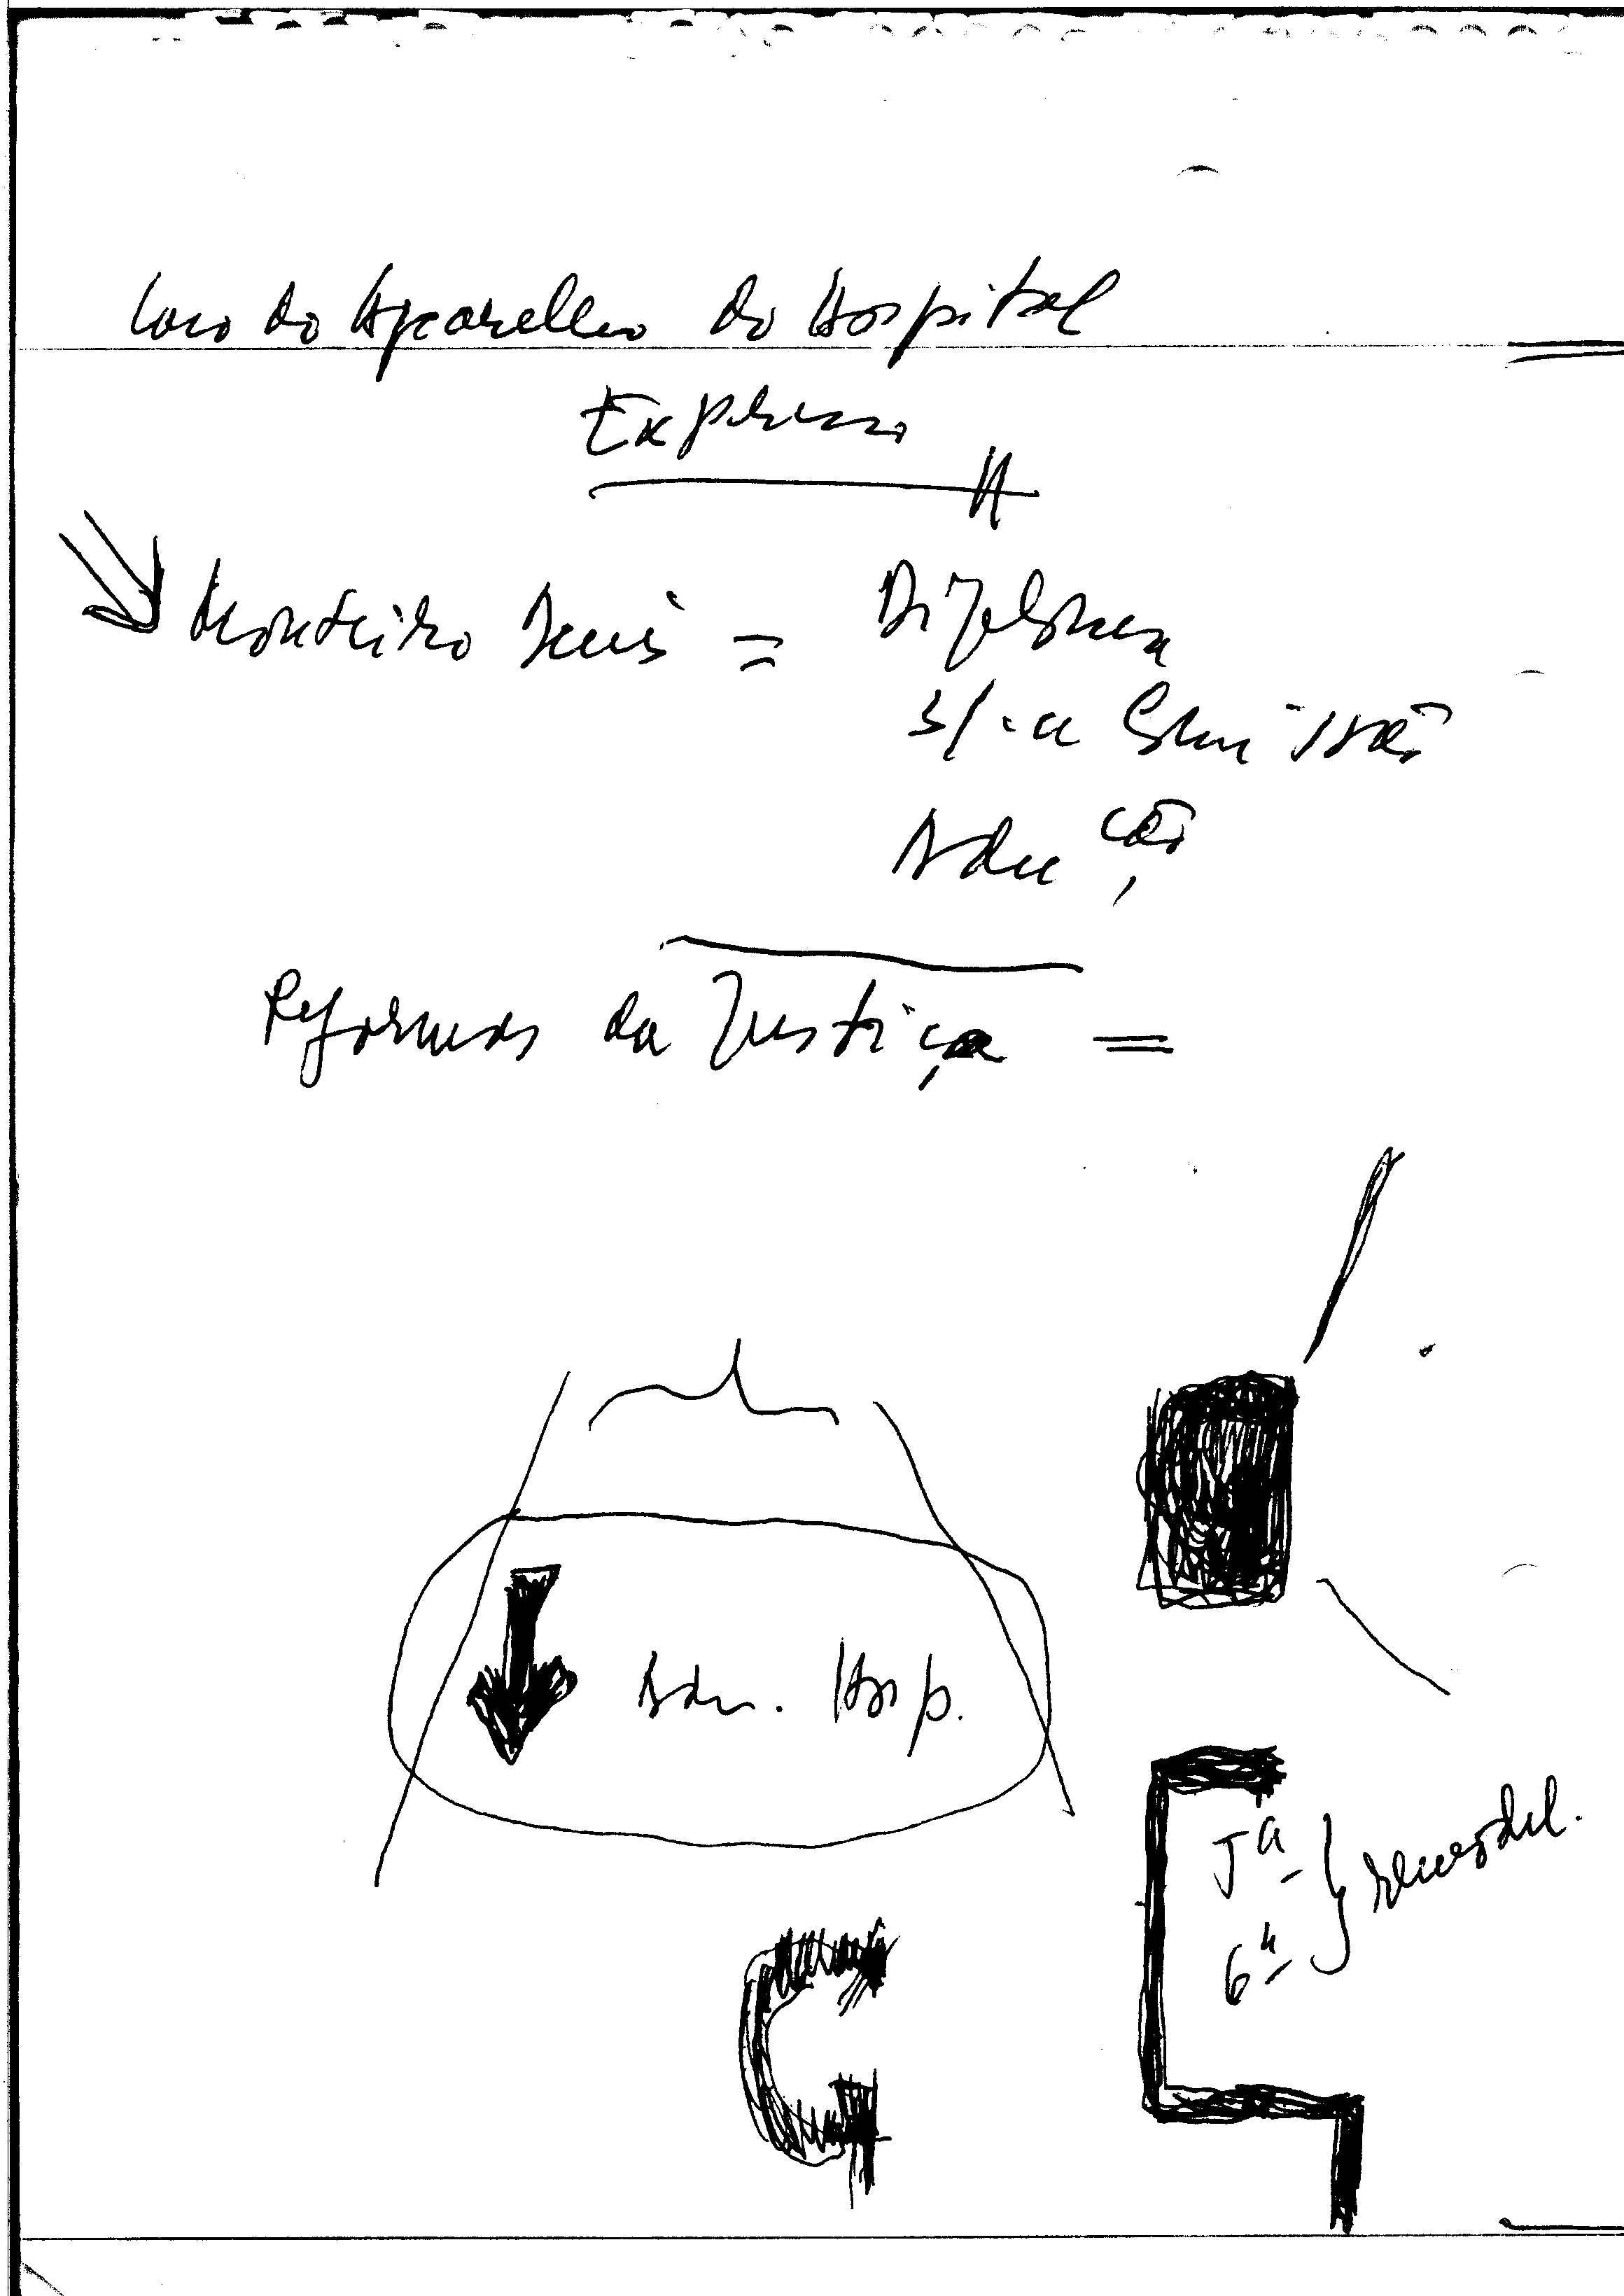 Caso do Aparelho do Hospital
Expresso
Monteiro Diniz = Diploma
s/ a Comissão
Adm ção
Reformas da Justiça =
Adm. Hosp.
5ª
6ª